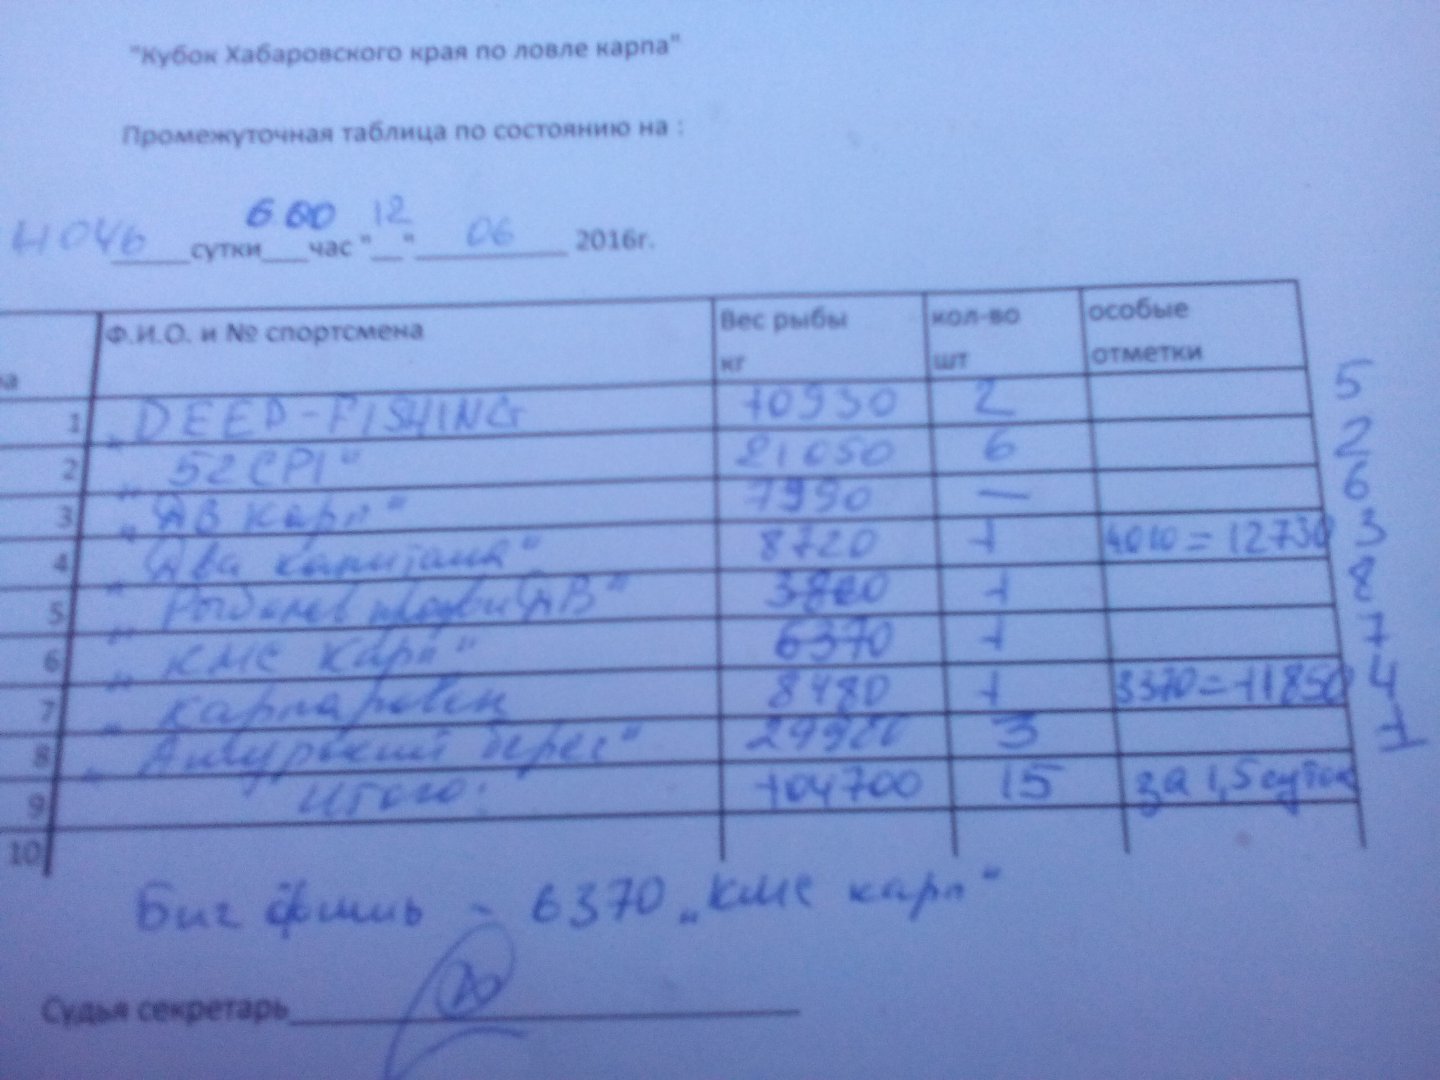 "Кубок Хабаровского края по ловле карпа"
Промежуточная таблица по состоянию на :
ночь сутки 6 00 час "12" 06 2016г.
Ф.И.О. и № спортсмена Вес рыбы кг кол-во шт особые отметки
1 „DEEP-FISHING 10930 2 5
2 „52CPI“ 21050 6 2
3 „ДВ карп“ 7990 — 6
4 „Два капитана“ 8720 1 4010=12730 3
5 3860 1 8
6 „КМС карп“ 6370 1 7
7 „карпаровен 8480 1 3370=11850 4
8 „Амурский берег“ 3 1
9 Итого: 104700 15 за 1,5 суток
10
Биг фишь - 6370 „КМС карп“
Судья секретарь